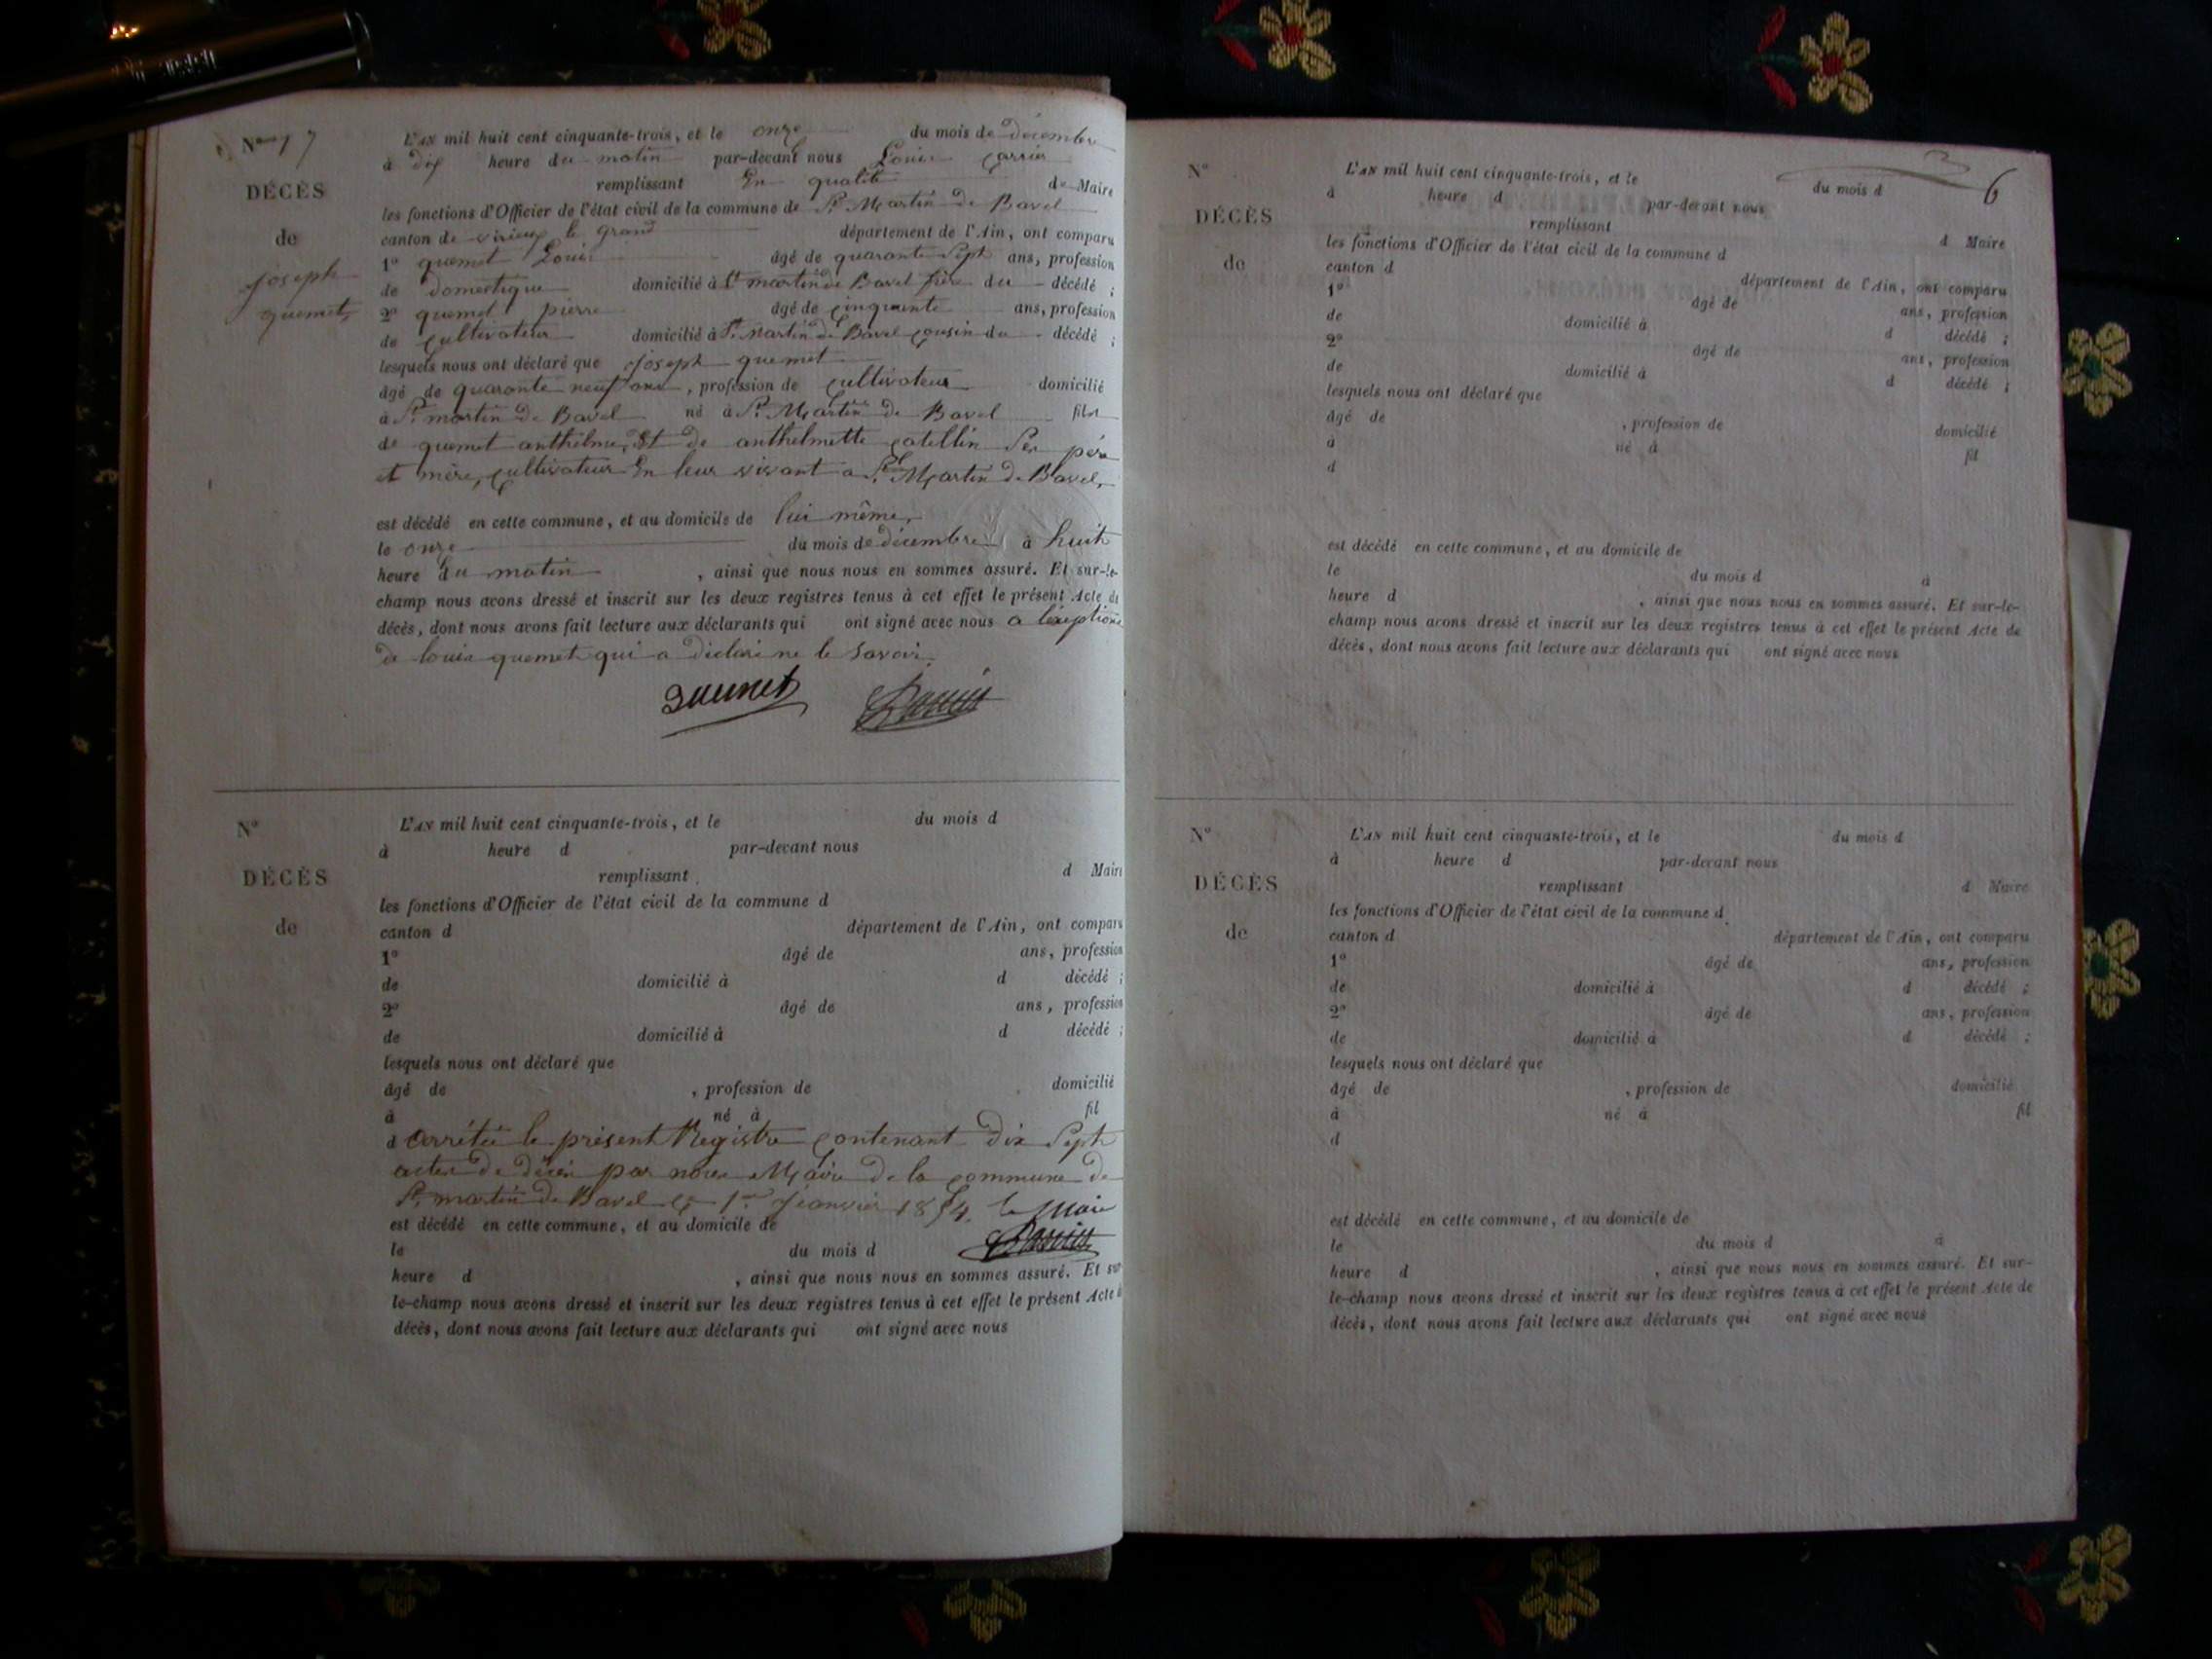 N° 17
DÉCÈS
de
joseph
quemet,
L'AN mil huit cent cinquante-trois, et le onze du mois de décembre
à dix heure du matin par-devant nous Louis Carrier
remplissant En qualité de Maire
les fonctions d'Officier de l'état civil de la commune de St Martin de Bavel
canton de virieux le grand département de l'Ain, ont comparu
1° quemet Louis âgé de quarante Sept ans, profession
de domestique domicilié à St martin de Bavel frère du décédé ;
2° quemet pierre âgé de cinquante ans, profession
de cultivateur domicilié à St Martin de Bavel cousin du décédé ;
lesquels nous ont déclaré que joseph quemet
âgé de quarante neuf ans, profession de cultivateur domicilié
à St martin de Bavel né à St Martin de Bavel fils
de quemet anthelme, Et de anthelmette catellin Ses père
et mère, cultivateur En leur vivant a St Martin de Bavel,
est décédé en cette commune, et au domicile de lui même,
le onze du mois de décembre à huit
heure du matin, ainsi que nous nous en sommes assuré. Et sur-le-
champ nous avons dressé et inscrit sur les deux registres tenus à cet effet le présent Acte de
décès, dont nous avons fait lecture aux déclarants qui ont signé avec nous a l'exeption
de louis quemet qui a déclaré ne le Savoir.
N°
DÉCÈS
de
L'AN mil huit cent cinquante-trois, et le du mois d
à heure d par-devant nous
remplissant d Maire
les fonctions d'Officier de l'état civil de la commune d
canton d département de l'Ain, ont comparu
1° âgé de ans, profession
de domicilié à d décédé ;
2° âgé de ans, profession
de domicilié à d décédé ;
lesquels nous ont déclaré que
âgé de , profession de domicilié
à né à fil
d arrêtée le présent Registre contenant dix Sept
actes de décès par nous Maire de la commune de
St martin de Bavel le 1er Jeanvier 1854. le Maire
est décédé en cette commune, et au domicile de
le du mois d
heure d , ainsi que nous nous en sommes assuré. Et sur
le-champ nous avons dressé et inscrit sur les deux registres tenus à cet effet le présent Acte de
décès, dont nous avons fait lecture aux déclarants qui ont signé avec nous
6
N°
DÉCÈS
de
L'AN mil huit cent cinquante-trois, et le du mois d
à heure d par-devant nous
remplissant d Maire
les fonctions d'Officier de l'état civil de la commune d
canton d département de l'Ain, ont comparu
1° âgé de ans, profession
de domicilié à d décédé ;
2° âgé de ans, profession
de domicilié à d décédé ;
lesquels nous ont déclaré que
âgé de , profession de domicilié
à né à fil
d
est décédé en cette commune, et au domicile de
le du mois d à
heure d , ainsi que nous nous en sommes assuré. Et sur-le-
champ nous avons dressé et inscrit sur les deux registres tenus à cet effet le présent Acte de
décès, dont nous avons fait lecture aux déclarants qui ont signé avec nous
N°
DÉCÈS
de
L'AN mil huit cent cinquante-trois, et le du mois d
à heure d par-devant nous
remplissant d Maire
les fonctions d'Officier de l'état civil de la commune d
canton d département de l'Ain, ont comparu
1° âgé de ans, profession
de domicilié à d décédé ;
2° âgé de ans, profession
de domicilié à d décédé ;
lesquels nous ont déclaré que
âgé de , profession de domicilié
à né à fil
d
est décédé en cette commune, et au domicile de
le du mois d à
heure d , ainsi que nous nous en sommes assuré. Et sur-
le-champ nous avons dressé et inscrit sur les deux registres tenus à cet effet le présent Acte de
décès, dont nous avons fait lecture aux déclarants qui ont signé avec nous